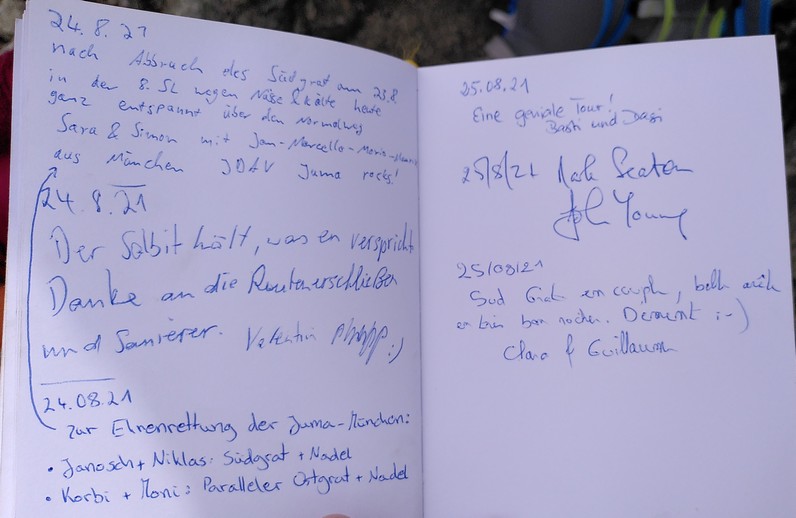 24.8.21
nach Abbruch des Südgrat am 23.8.
in der 8. SL wegen Nässe & Kälte heute
ganz entspannt über den Normalweg
Sara & Simon mit Jan-Marcello-Morin-
aus München JDAV Juma rocks!
24.8.21
Der Salbit hält, was er verspricht
Danke an die Routenerschließer
und Sanierer. Valentin Philipp :)
24.08.21
Zur Ehrenrettung der Juma-München:
• Janosch + Niklas: Südgrat + Nadel
• Korbi + Moni: Paralleler Ostgrat + Nadel
25.08.21
Eine geniale Tour!
Basti und Dasi
25/8/21 Mark Seaton
John Young
25/08/21
Sud en couple, belle
bon rocher. :-)
Clara & Guillaume